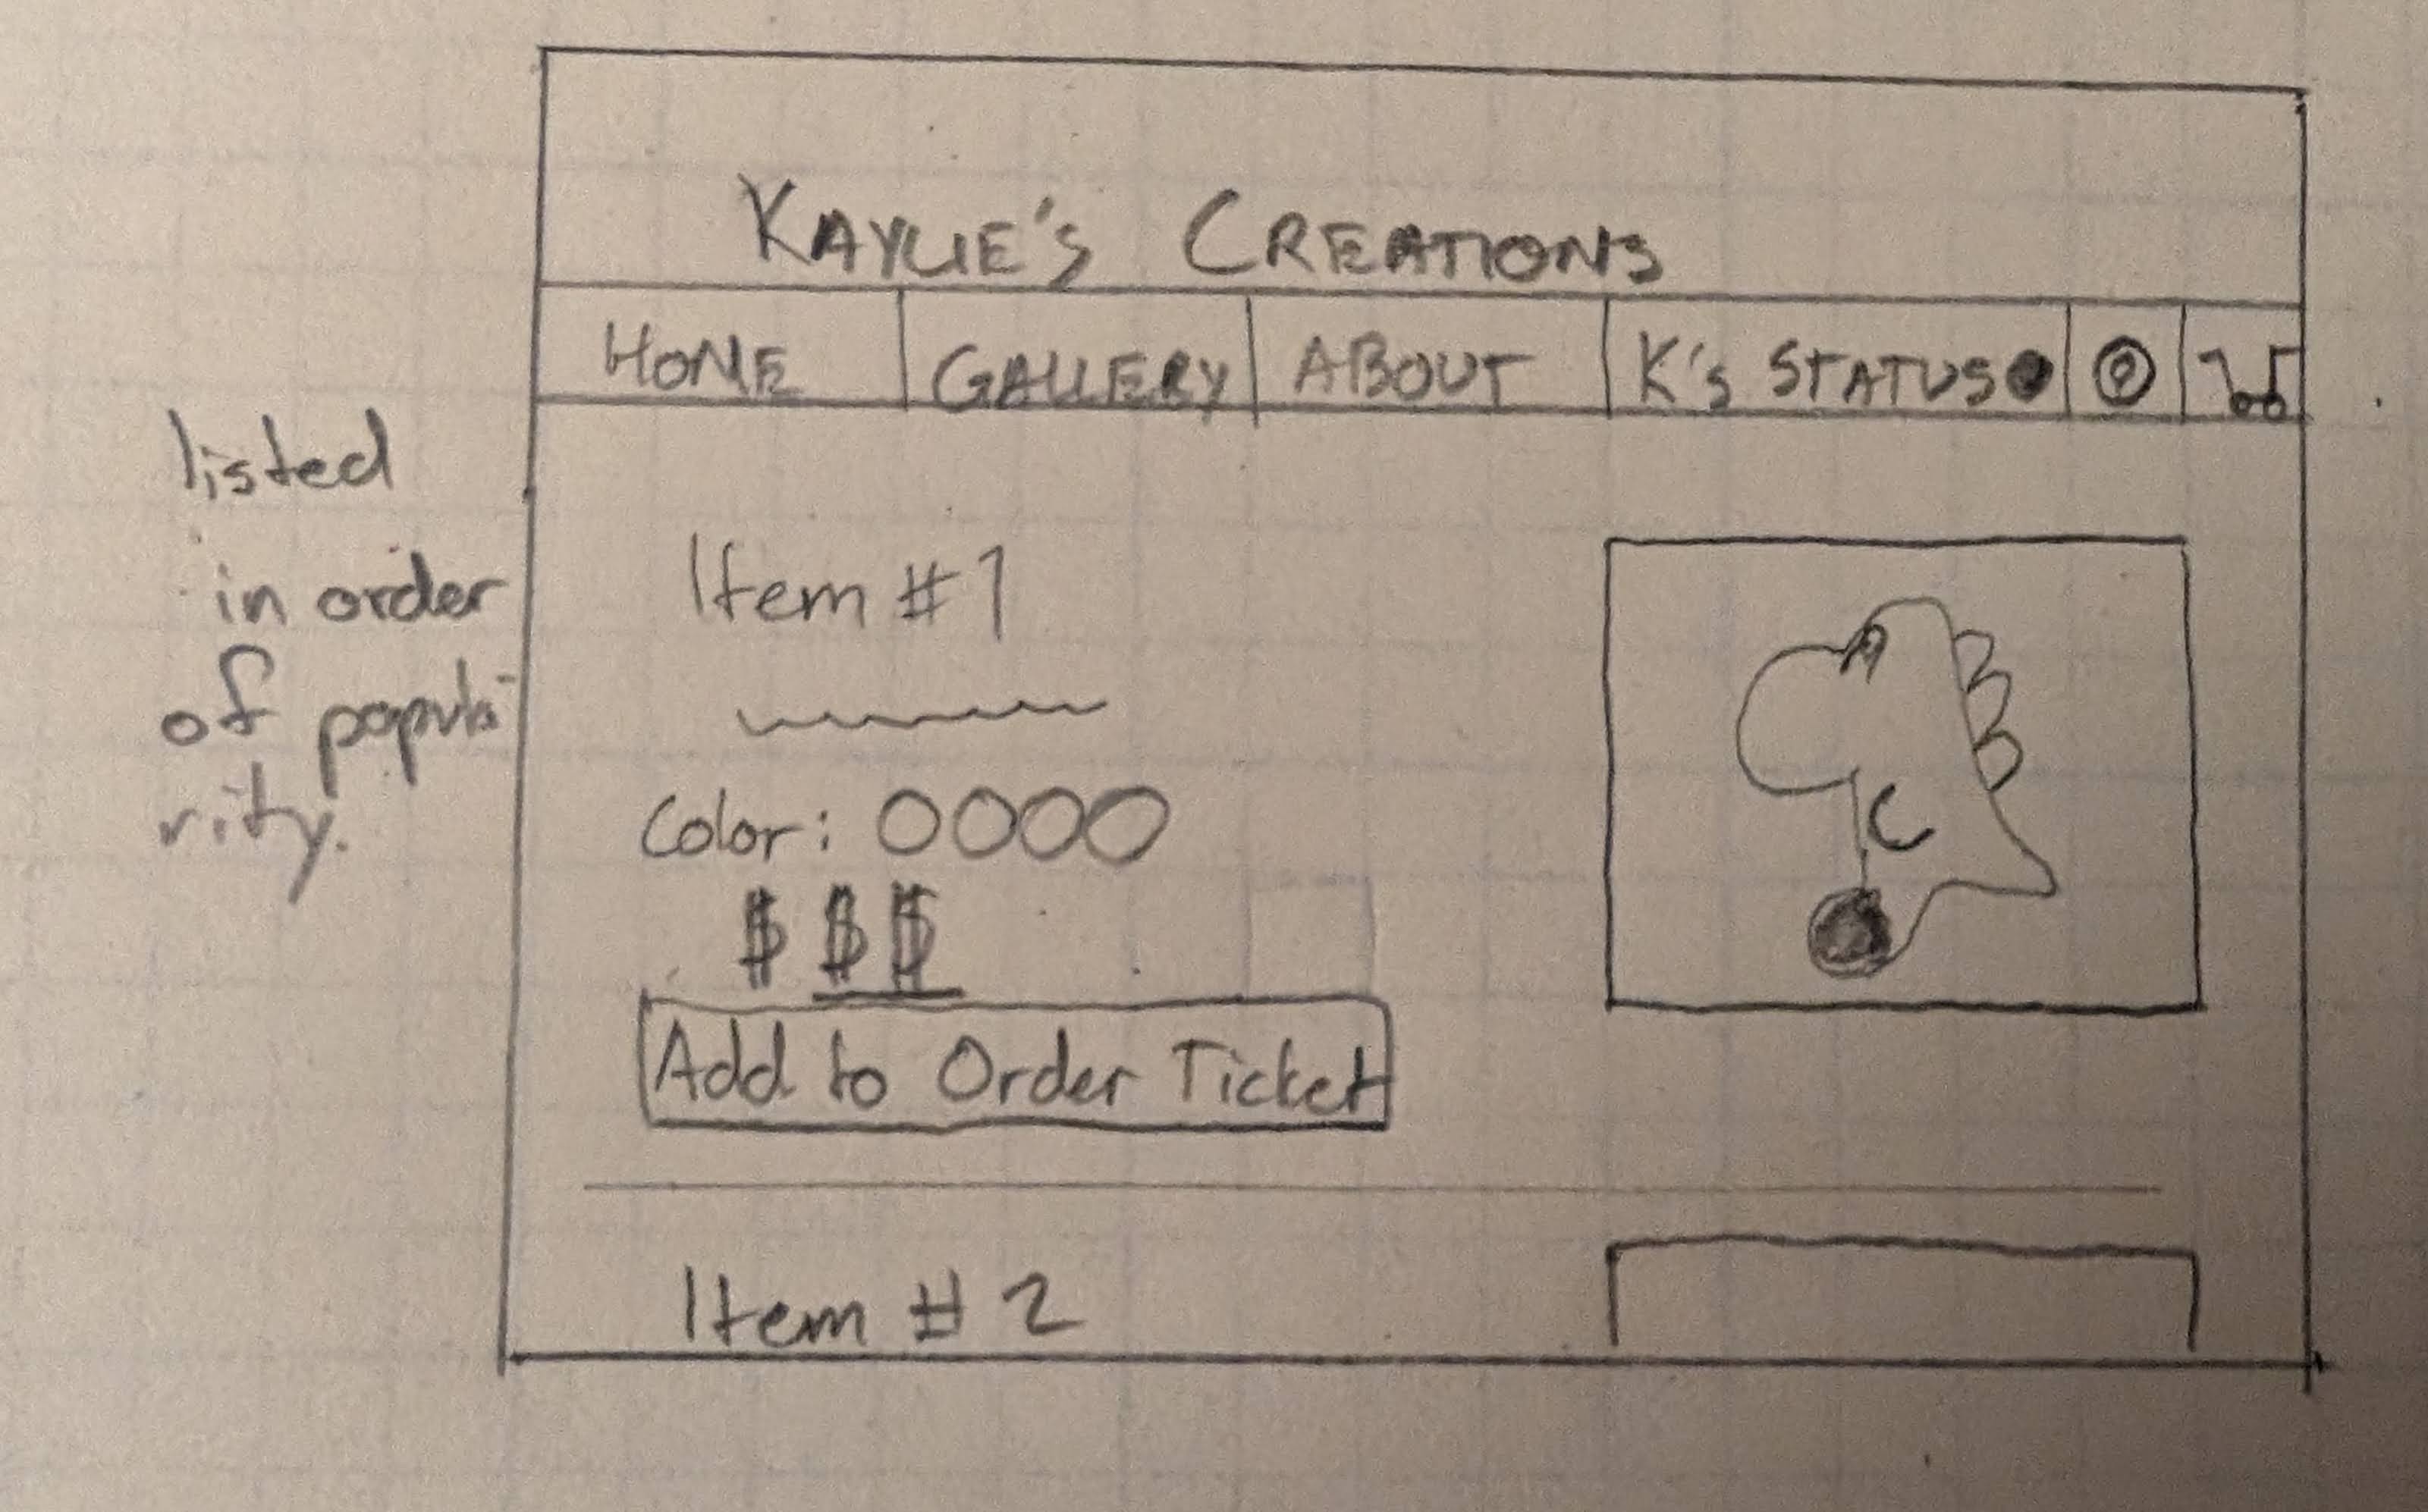 KAYLIE'S CREATIONS
HOME GALLERY ABOUT K's STATUS
listed
in order
of popula-
rity.
Item #1
Color:
$$$
Add to Order Ticket
Item #2